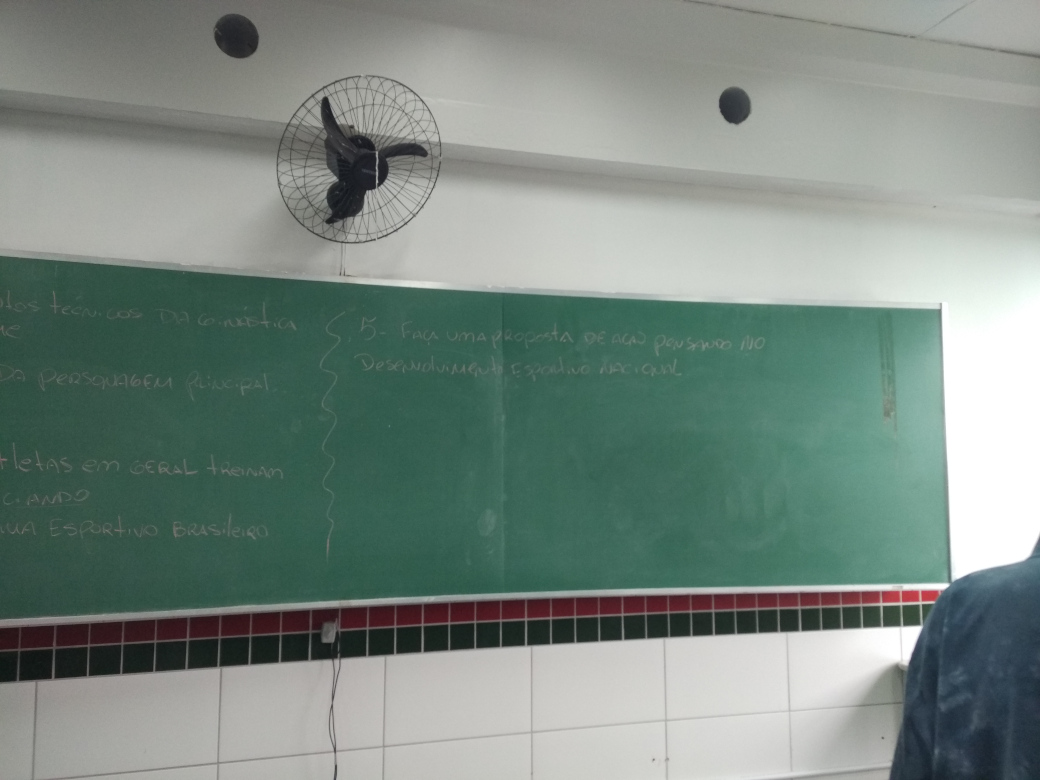 tos técnicos DA Ginástica
me
DA PERSONAGEM PRINCIPAL.
tletas em GERAL treinam
CIANDO
ESPORTIVO BRASileiRO
5- FAÇA UMA PROPOSTA DE AÇÃO pensando NO
Desenvolvimento Esportivo NACIONAL